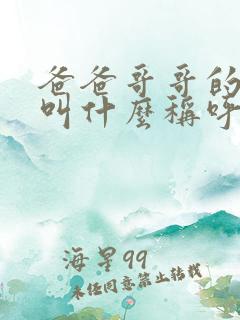 爸爸哥哥的
叫什麼稱呼
海星99
未經同意禁止轉載